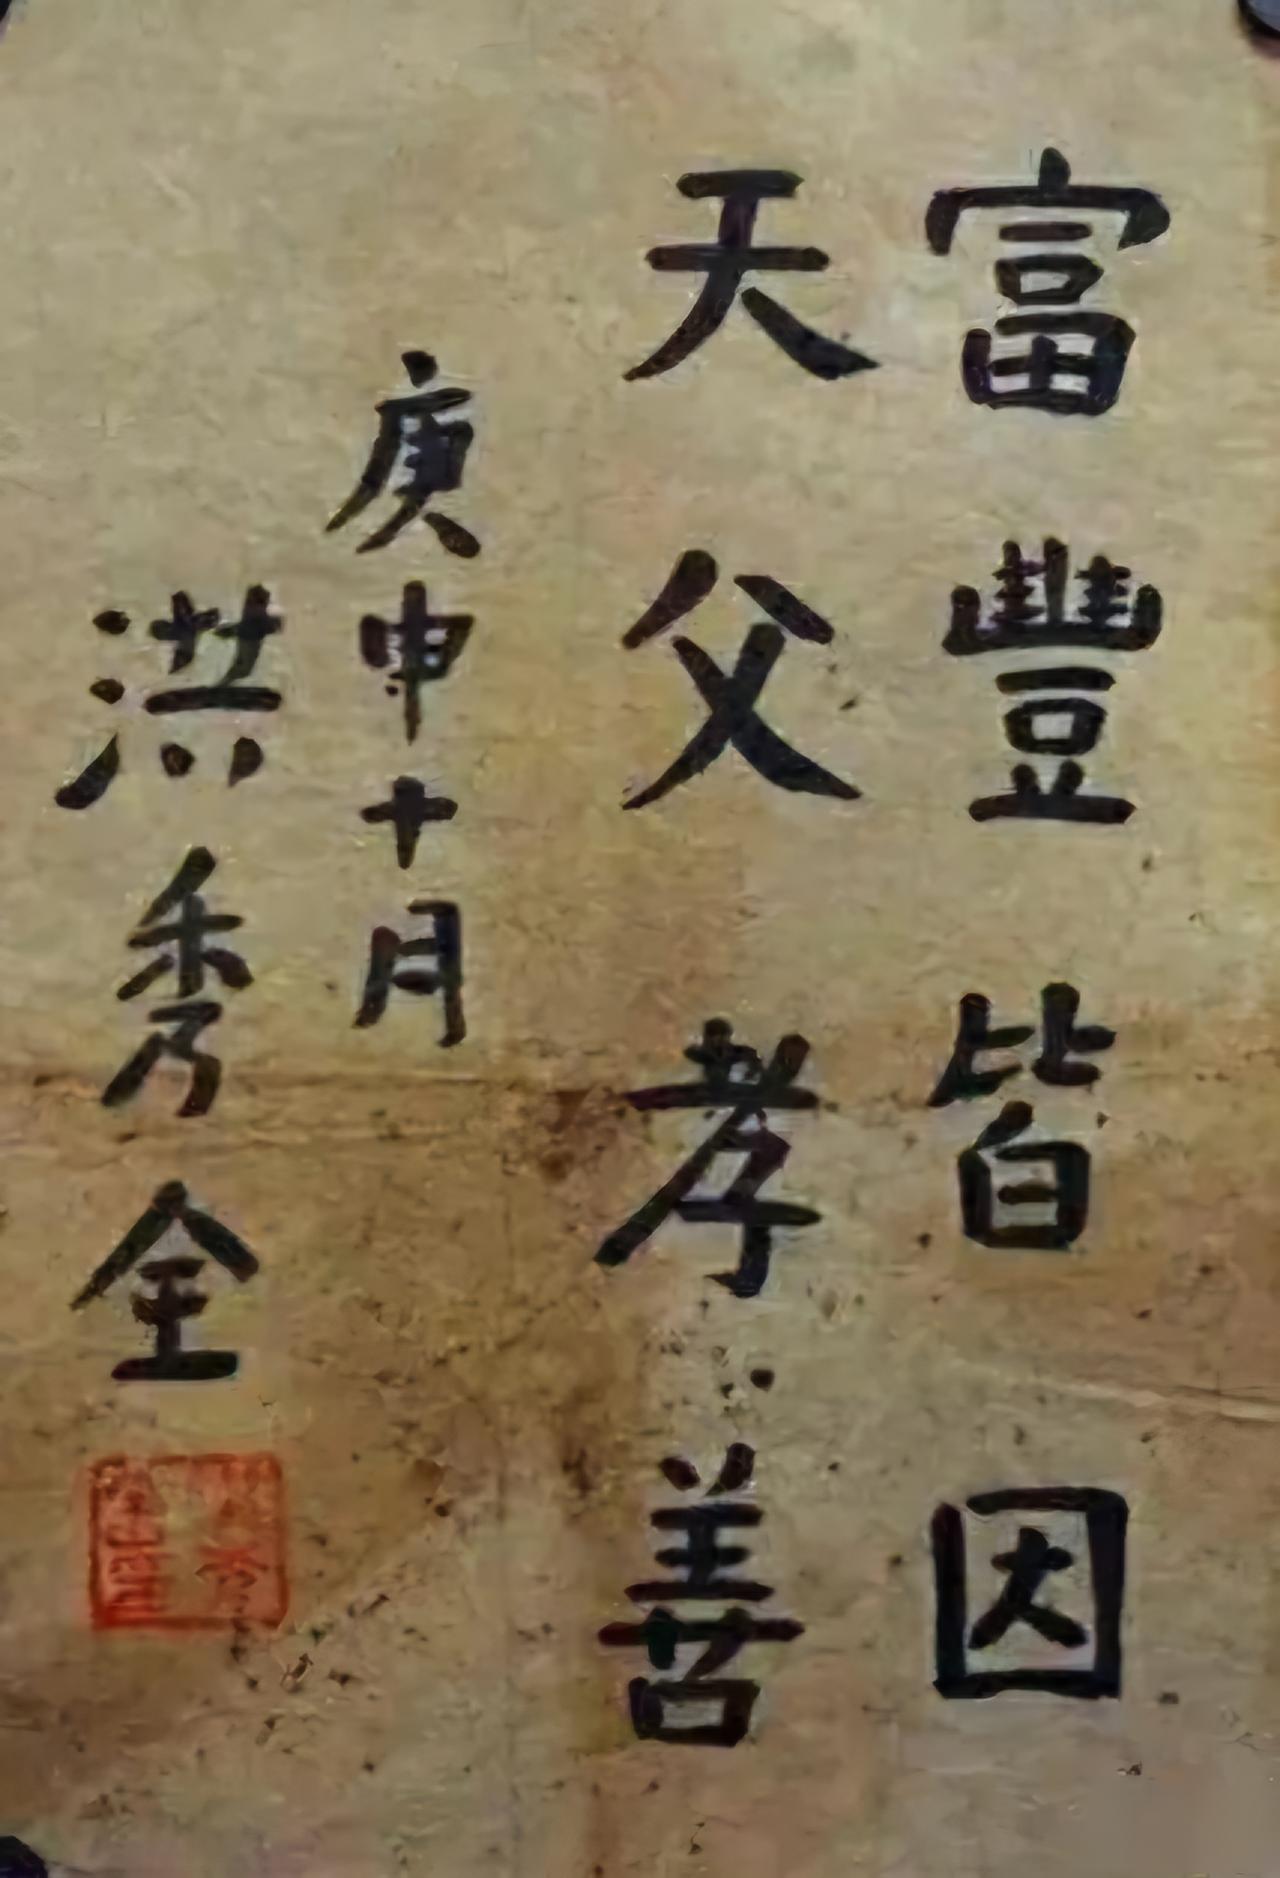 富豐皆因
天父孝善
庚申十月
洪秀全